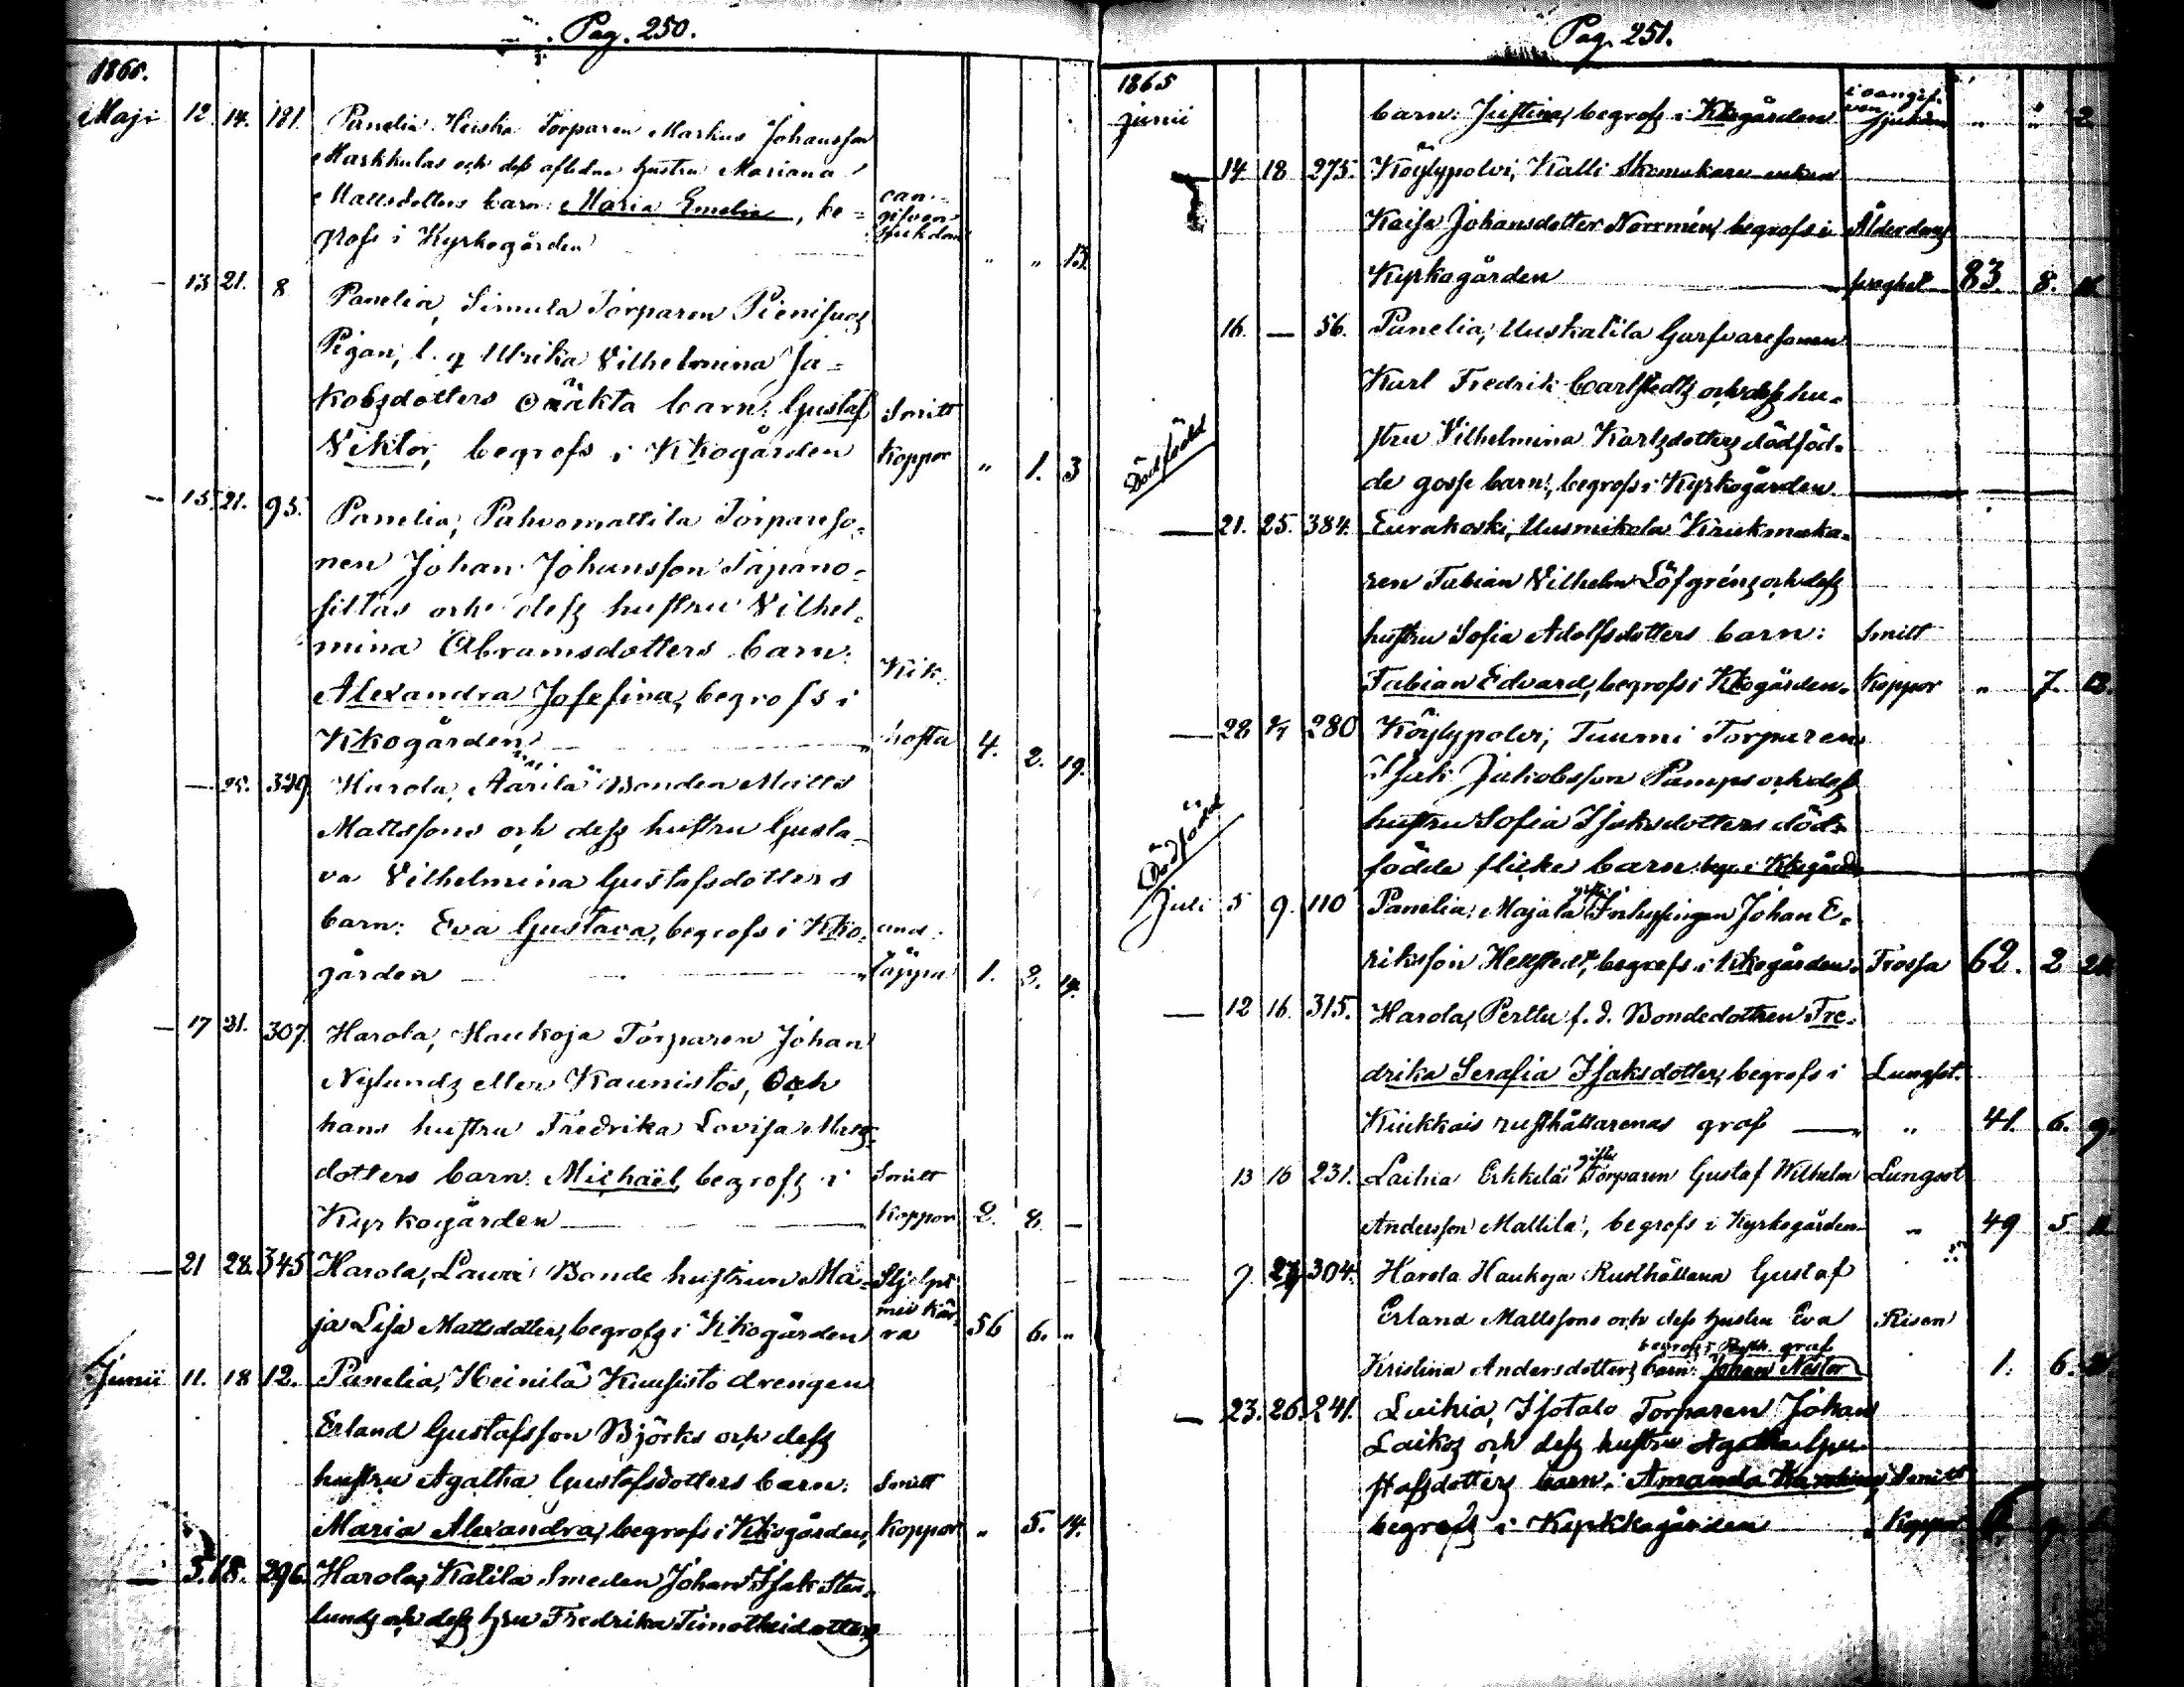 Pag. 250.
1865.
Maji 12. 14. 181. Panelia Heiska Torparen Markus Johansson
Markkulas och dess aflidne hustru Mariana
Mattsdotters barn: Maria Emelia, be= oan=
grofs i Kyrkogården gifven sjukdom " " 13.
— 13 21. 8 Panelia, Simula Torparen Pienisuos
Pigan, l. q Ulrika Vilhelmina Ja=
kobsdotters oäkta barn: Gustaf Smitt
Viktor, begrofs i Kkogården Koppor " 1. 3
— 15. 21. 95. Panelia, Pahvomattila Torpareso=
nen Johan Johansson Tapano=
sillas och dess hustru Vilhel=
mina Abramsdotters barn:
Alexandra Josefina, begrofs i Kik
Kkogården hosta 4. 2. 19.
— 25. 329. Harola, Äärilä Bonden Matts
Mattssons och dess hustru Gusta=
va Vilhelmina Gustafsdotters
barn: Eva Gustava, begrofs i Kko= and:
gården täppa 1. 2. 14.
— 17 21. 307. Harola, Haukoja Torparen Johan
Nylunds eller Kaunistos, Och
hans hustru Fredrika Lovisa Mats=
dotters barn: Michaël, begrofs i Smitt
Kyrkogården Koppor 2. 8. —
— 21 28. 345 Harola, Lauri Bonde hustrun Ma=
ja Lisa Mattsdotter, begrofs i Kkogården ra 56 6. "
Junii 11. 18 12. Panelia, Heinilä Kuusisto drengen
Erland Gustafsson Björks och dess
hustru Agatha Gustafsdotters barn: Smitt
Maria Alexandra, begrofs i Kkogården, Koppor " 5. 14.
— 5. 18. 296. Harola, Katila Smeden Johan Isak Sten=
lunds och dess hru Fredrika Timotheidotters
Pag. 251.
1865
junii barn: Justina, begrofs i Kkogården oangifven sjukdom " " 2
— 14 18 275. Köylypolvi, Kalli Skomakare enkan
Kaisa Johansdotter Norrmén, begrofs i Ålderdoms
Kyrkogården svaghet 83. 8.
16. — 56. Panelia, Uuskatila Garfvaresonen
Karl Fredrik Carlstedts och dess hu=
stru Vilhelmina Karlsdotters dödföd=
Dödfödd de gosse barn, begrofs i Kyrkogården
— 21. 25. 384. Eurakoski, Uusmikola Krukmaka=
ren Fabian Vilhelm Löfgréns och dess
hustru Sofia Adolfsdotters barn: Smitt
Fabian Edvard, begrofs i Kkogården. Koppor " 7. 13.
— 28 2/7 280 Köylypolvi, Tuurni Torparen
Isak Jakobsson Pamps och dess
hustru Sofia Isaksdotters död=
Dödfödd födde flicke barn begr. i Kkogården
Juli 5 9. 110 Panelia, Majala gifte Inhysingen Johan E=
riksson Hellstedt, begrofs i Kkogården. Frossa 62. 2
— 12 16. 315. Harola, Perttu f. d. Bondedottren Fre=
drika Serafia Isaksdotter, begrofs i Lungsot.
Kiukkais rusthållarenas graf " 41. 6. 9.
13 16 231. Laihia Erkkilä gifte Torparen Gustaf Wilhelm Lungsot
Andersson Mattila, begrofs i Kyrkogården " 49 5
9. 304. Harola Haukoja Rusthållarn Gustaf
Erland Mattssons och dess hustru Eva Risen
begrofs i Rusth. graf
Kristina Andersdotters barn: Johan Nestor 1. 6.
— 23. 26. 241. Laihia, Isotalo Torparen Johan
Laikos och dess hustru Agatha Gus=
tafsdotters barn: Amanda Smitt
begrofs i Kyrkkogården Koppor